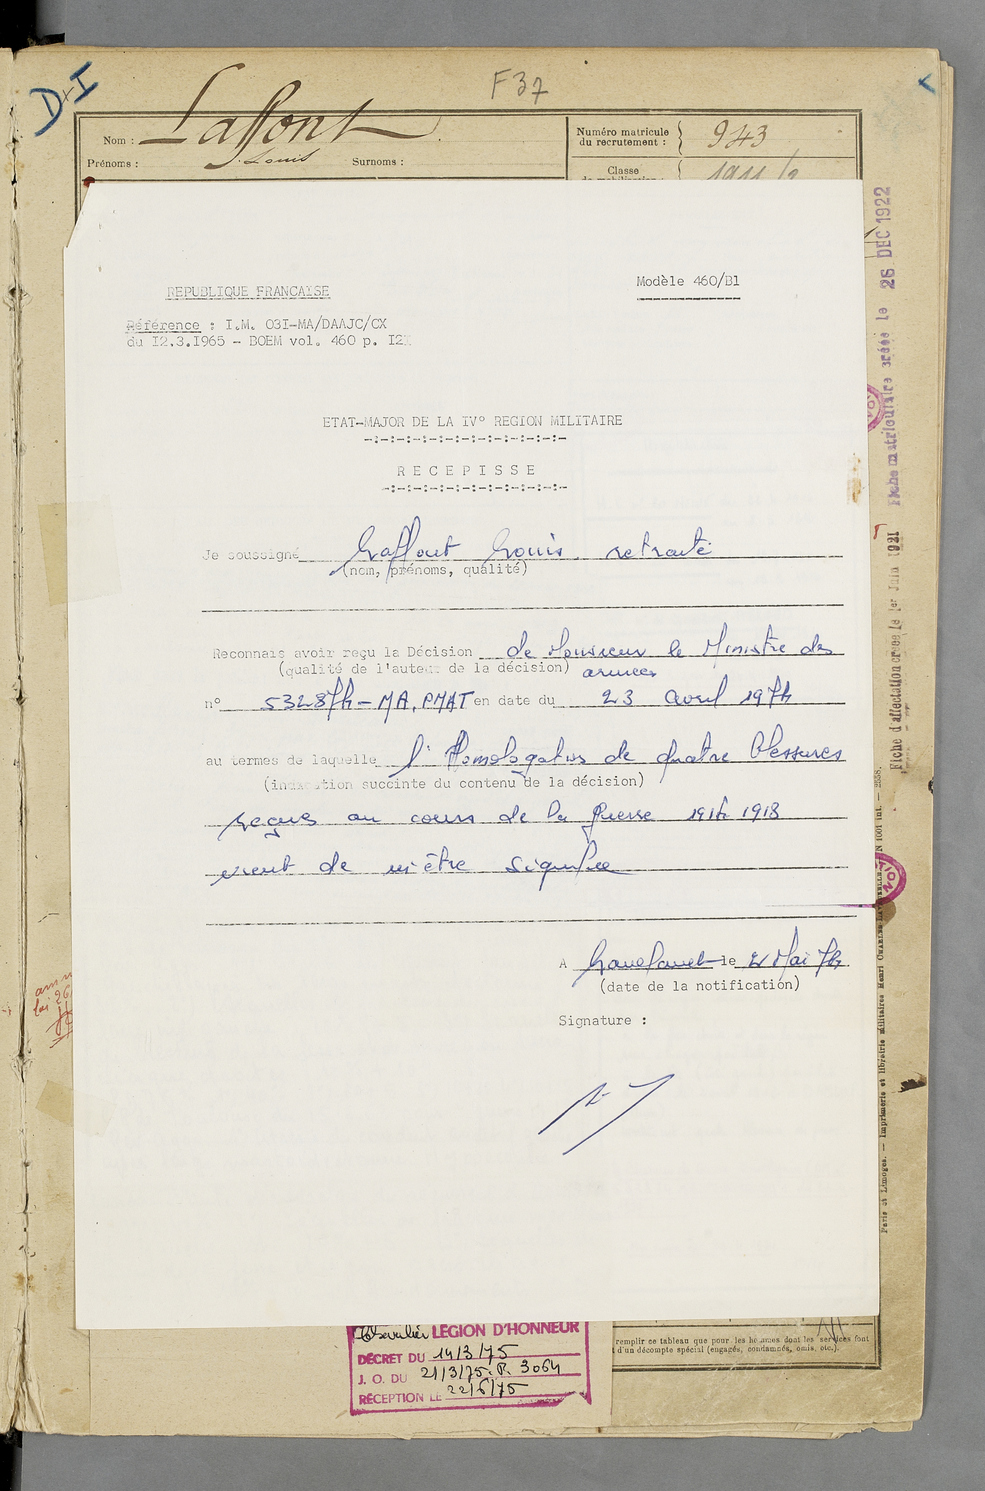 D I
F 37
Nom : Laffont
Prénoms : Louis Surnoms :
Numéro matricule
du recrutement : 943
Classe
de mobilisation :
Fiche matriculaire créée le 26 DEC 1922
Fiche d'affectation créée le 1er Juin 1921
REPUBLIQUE FRANCAISE
Modèle 460/B1
Référence : I.M. 03I-MA/DAAJC/CX
du I2.3.I965 - BOEM vol. 460 p. I2
ETAT-MAJOR DE LA IV° REGION MILITAIRE
-:-:-:-:-:-:-:-:-:-:-:-:-
R E C E P I S S E
-:-:-:-:-:-:-:-:-:-:-:-
Je soussigné Laffont Louis retraité
(nom, prénoms, qualité)
Reconnais avoir reçu la Décision de Monsieur le Ministre des
(qualité de l'auteur de la décision) armées
n° 53287h - MA. PMAT en date du 23 avril 1974
au termes de laquelle l'Homologation de quatre blessures
(indication succinte du contenu de la décision)
reçues au cours de la guerre 1914 1918
vient de m'être signifiée
A Lavelanet le 2 Mai 74
(date de la notification)
Signature :
Chevalier LÉGION D'HONNEUR
DÉCRET DU 14/3/75
J. O. DU 21/3/75. P. 3064
RÉCEPTION LE 22/6/75
remplir ce tableau que pour les hommes dont les services font
d'un décompte spécial (engagés, condamnés, omis, etc.).
Paris et Limoges. — Imprimerie et librairie militaires Henri CHARLES-LAVAUZELLE.